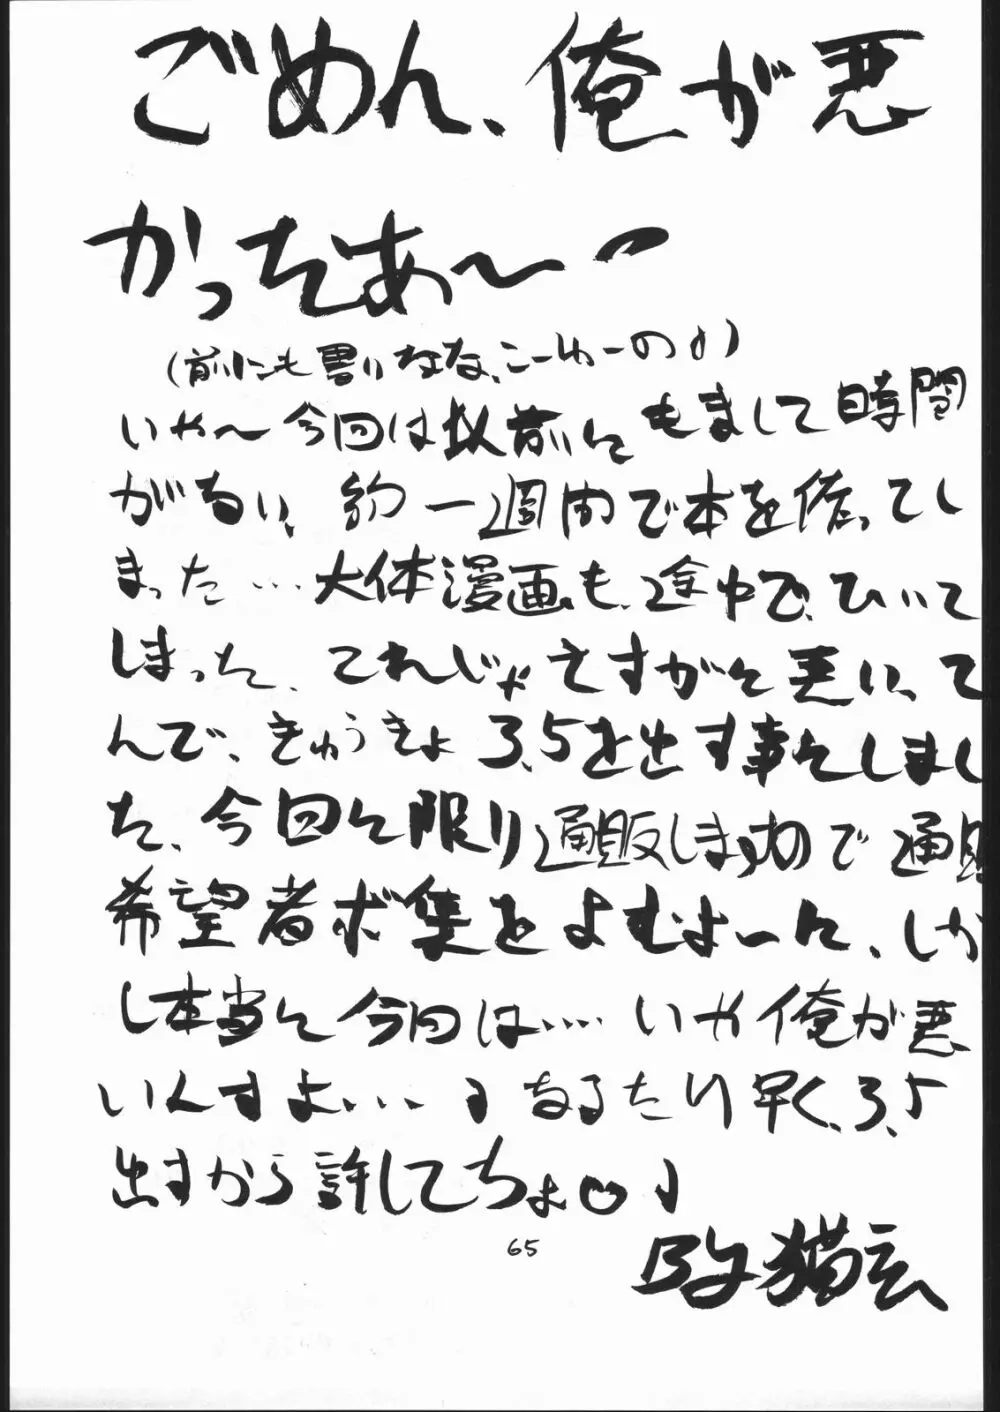 ごめん、俺が悪
かったあ〜ー
(前にも書いたな、こーゆーの♪)
いや〜今回は以前にもまして時間
がない、約一週間で本を作ってし
まった…大体漫画も、途中で、ひいて
しまった、てれじゃさすがに悪い、て
んで、きゅうきょ3.5を出す事にしまし
た、今回に限り通販しますので通販
希望者ボ集をよむよーに、しか
し本当に今回は…いや俺が悪
いんすよ…♪なるたけ早く、3.5
出すから許してちょ♡♪
65
猫玄